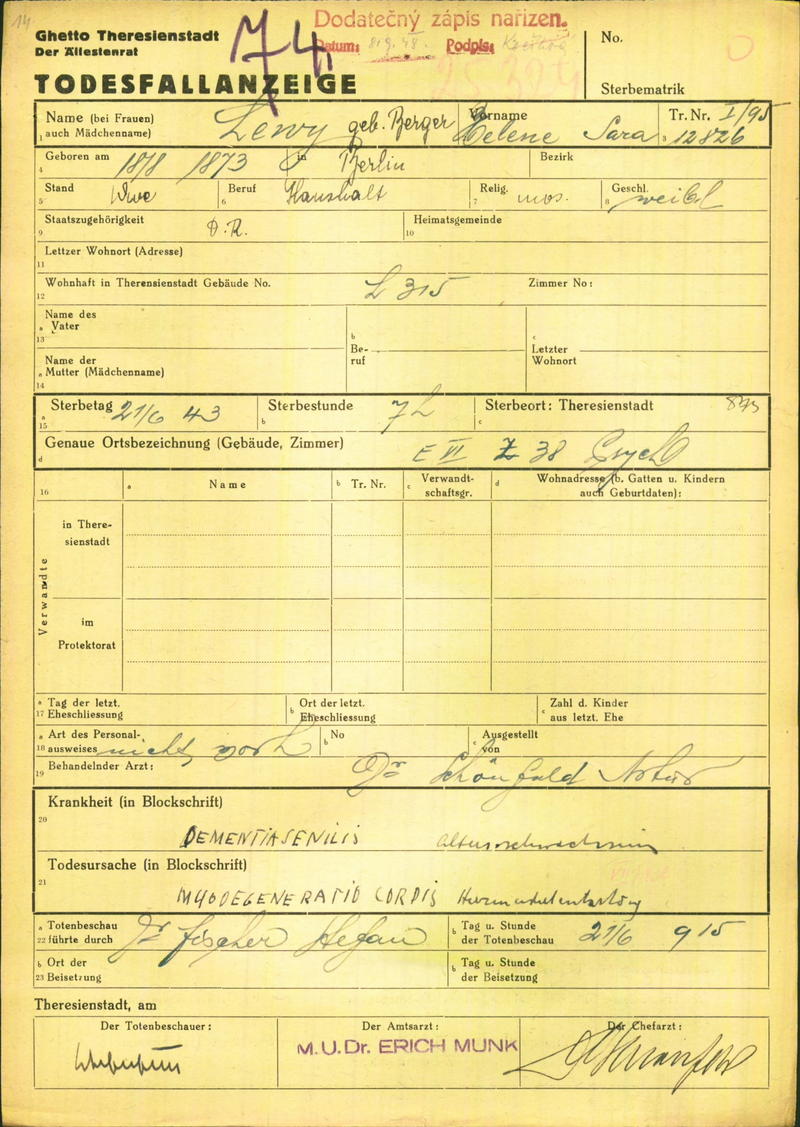 14
Ghetto Theresienstadt
Der Ältestenrat
74
Dodatečný zápis nařízen.
Datum: 8/9.48. Podpis:
No.
TODESFALLANZEIGE
Sterbematrik
Name (bei Frauen) Lewy geb. Berger Vorname Helene Sara Tr. Nr. I/95
1 auch Mädchenname) 3 12826
Geboren am 18/8 1873 in Berlin Bezirk
4
Stand Wwe Beruf Haushalt Relig. mos. Geschl. weibl
5 6 7 8
Staatszugehörigkeit D.R. Heimatsgemeinde
9 10
Lettzer Wohnort (Adresse)
11
Wohnhaft in Therensienstadt Gebäude No. L 315 Zimmer No:
12
Name des
a Vater
13
b Be-
ruf
c Letzter
Wohnort
Name der
a Mutter (Mädchenname)
14
a Sterbetag 21/6 43 Sterbestunde 7 h Sterbeort: Theresienstadt
15 b c
Genaue Ortsbezeichnung (Gebäude, Zimmer) E VI 38
d
16 a Name b Tr. Nr. c Verwandt-
schaftsgr. d Wohnadresse (b. Gatten u. Kindern
auch Geburtdaten):
Verwandte
in There-
sienstadt
im
Protektorat
a Tag der letzt.
17 Eheschliessung
b Ort der letzt.
Eheschliessung
c Zahl d. Kinder
aus letzt. Ehe
a Art des Personal-
18 ausweises nicht vorh
b No
c Ausgestellt
von
Behandelnder Arzt: Dr Schönfeld
19
Krankheit (in Blockschrift)
20
DEMENTIA SENILIS Altersschwachsinn
Todesursache (in Blockschrift)
21
MYODEGENERATIO CORDIS Herzmuskelentartung
a Totenbeschau Dr Fischer Stefan
22 führte durch
b Tag u. Stunde
der Totenbeschau 21/6 9 15
b Ort der
23 Beisetzung
b Tag u. Stunde
der Beisetzung
Theresienstadt, am
Der Totenbeschauer:
Der Amtsarzt:
M.U.Dr. ERICH MUNK
Der Chefarzt: